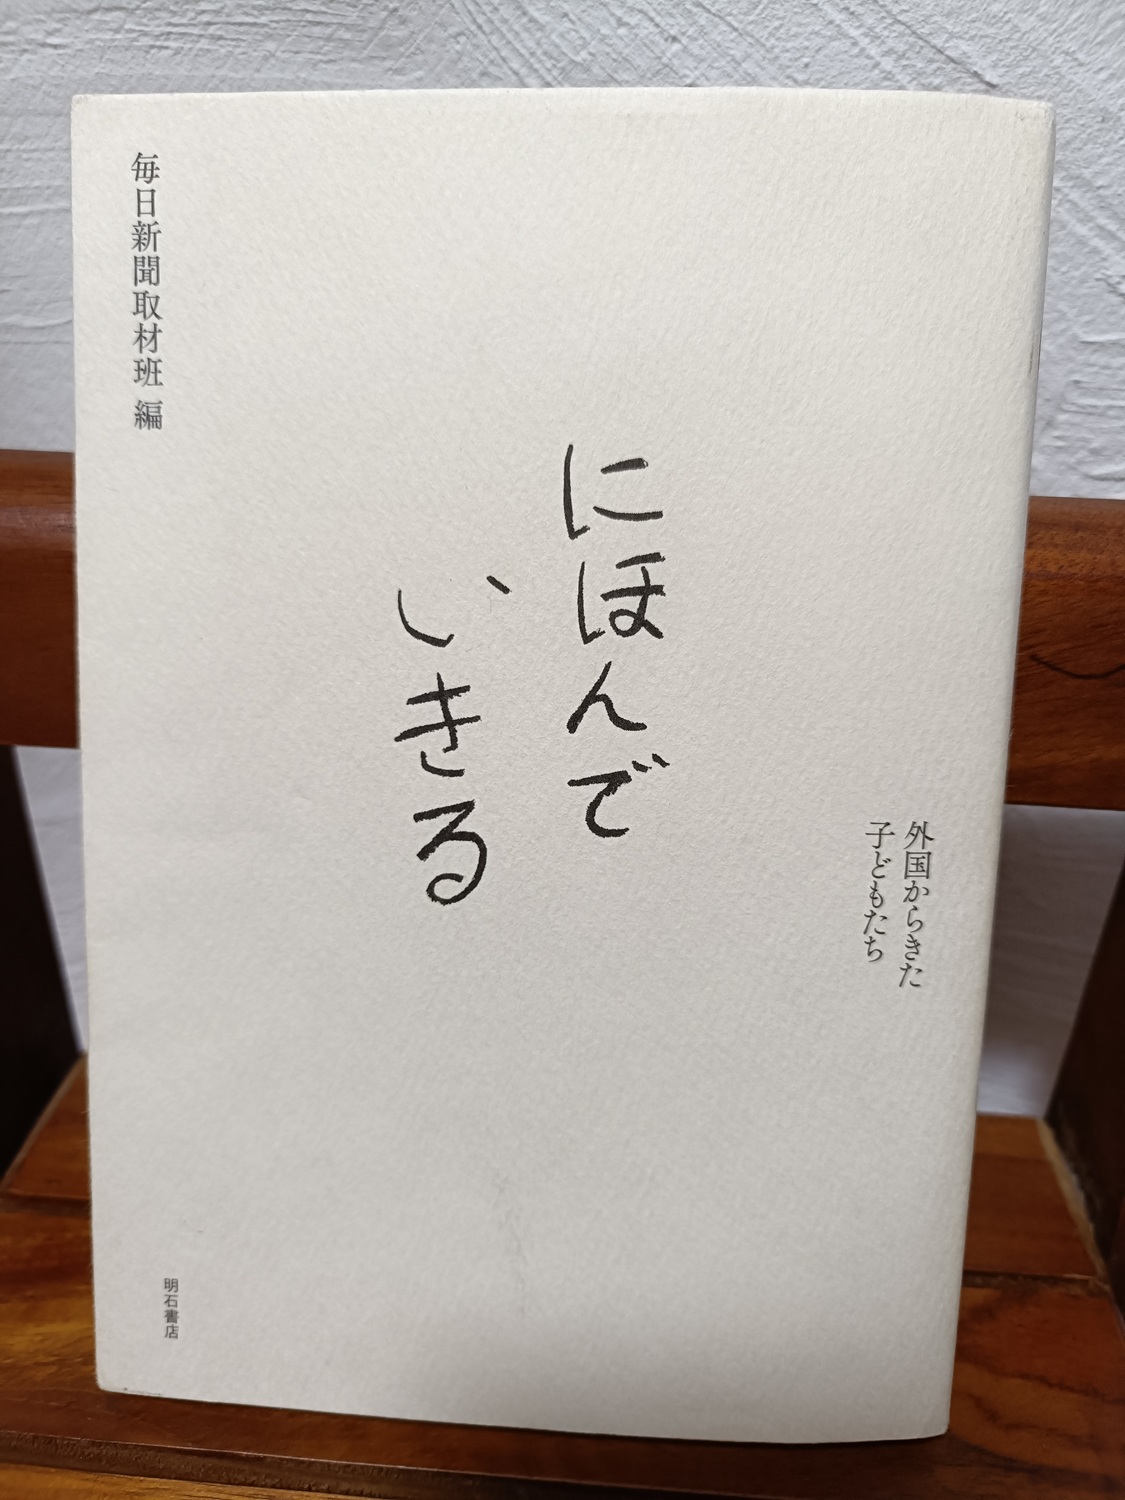 外国からきた
子どもたち
にほんで
いきる
毎日新聞取材班 編
明石書店